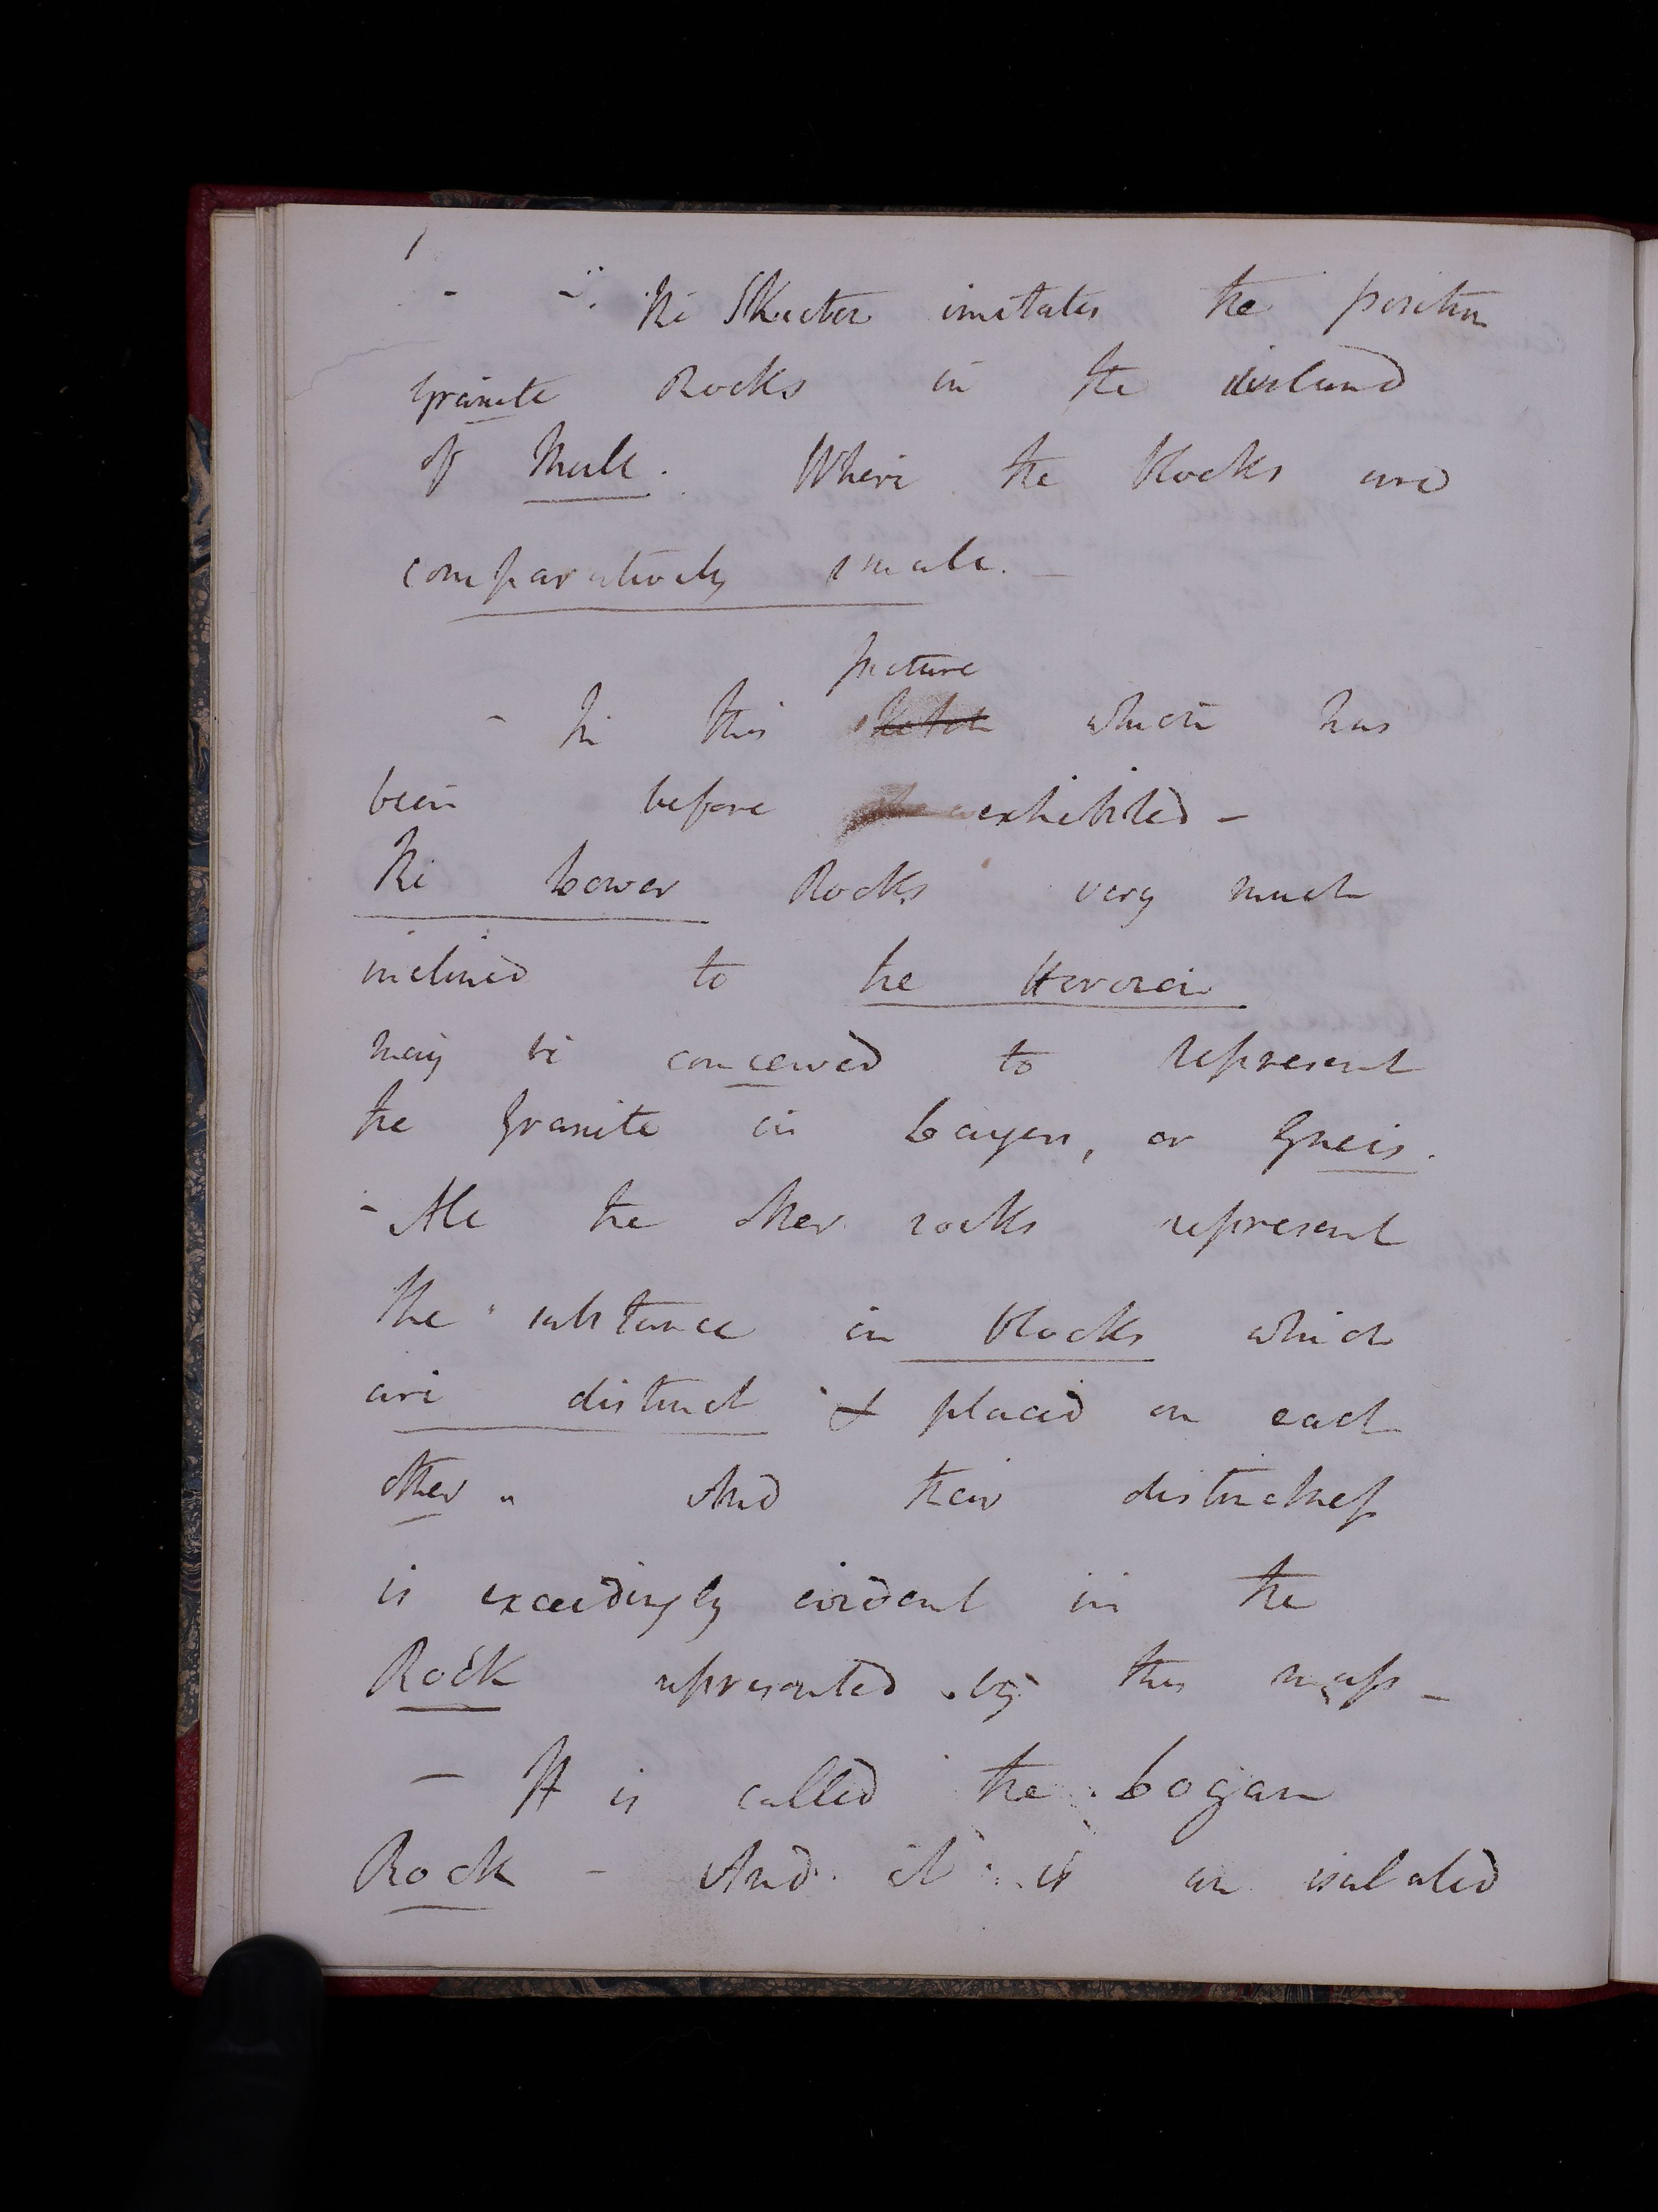 - The Sketch imitates the position
granite Rocks in the island
of Mull. Where the blocks are
comparatively small. -
picture
- In this sketch which has
been before exhibited -
The Lower Rocks very much
inclined to the Horizon
may be conceived to represent
the Granite in Layers, or Gneis.
- All the other rocks represent
the substance in blocks which
are distinct & placed on each
other. And their distinctness
is exceedingly evident in the
Rock represented by this mass -
- It is called the Logan
Rock - And it is an isolated